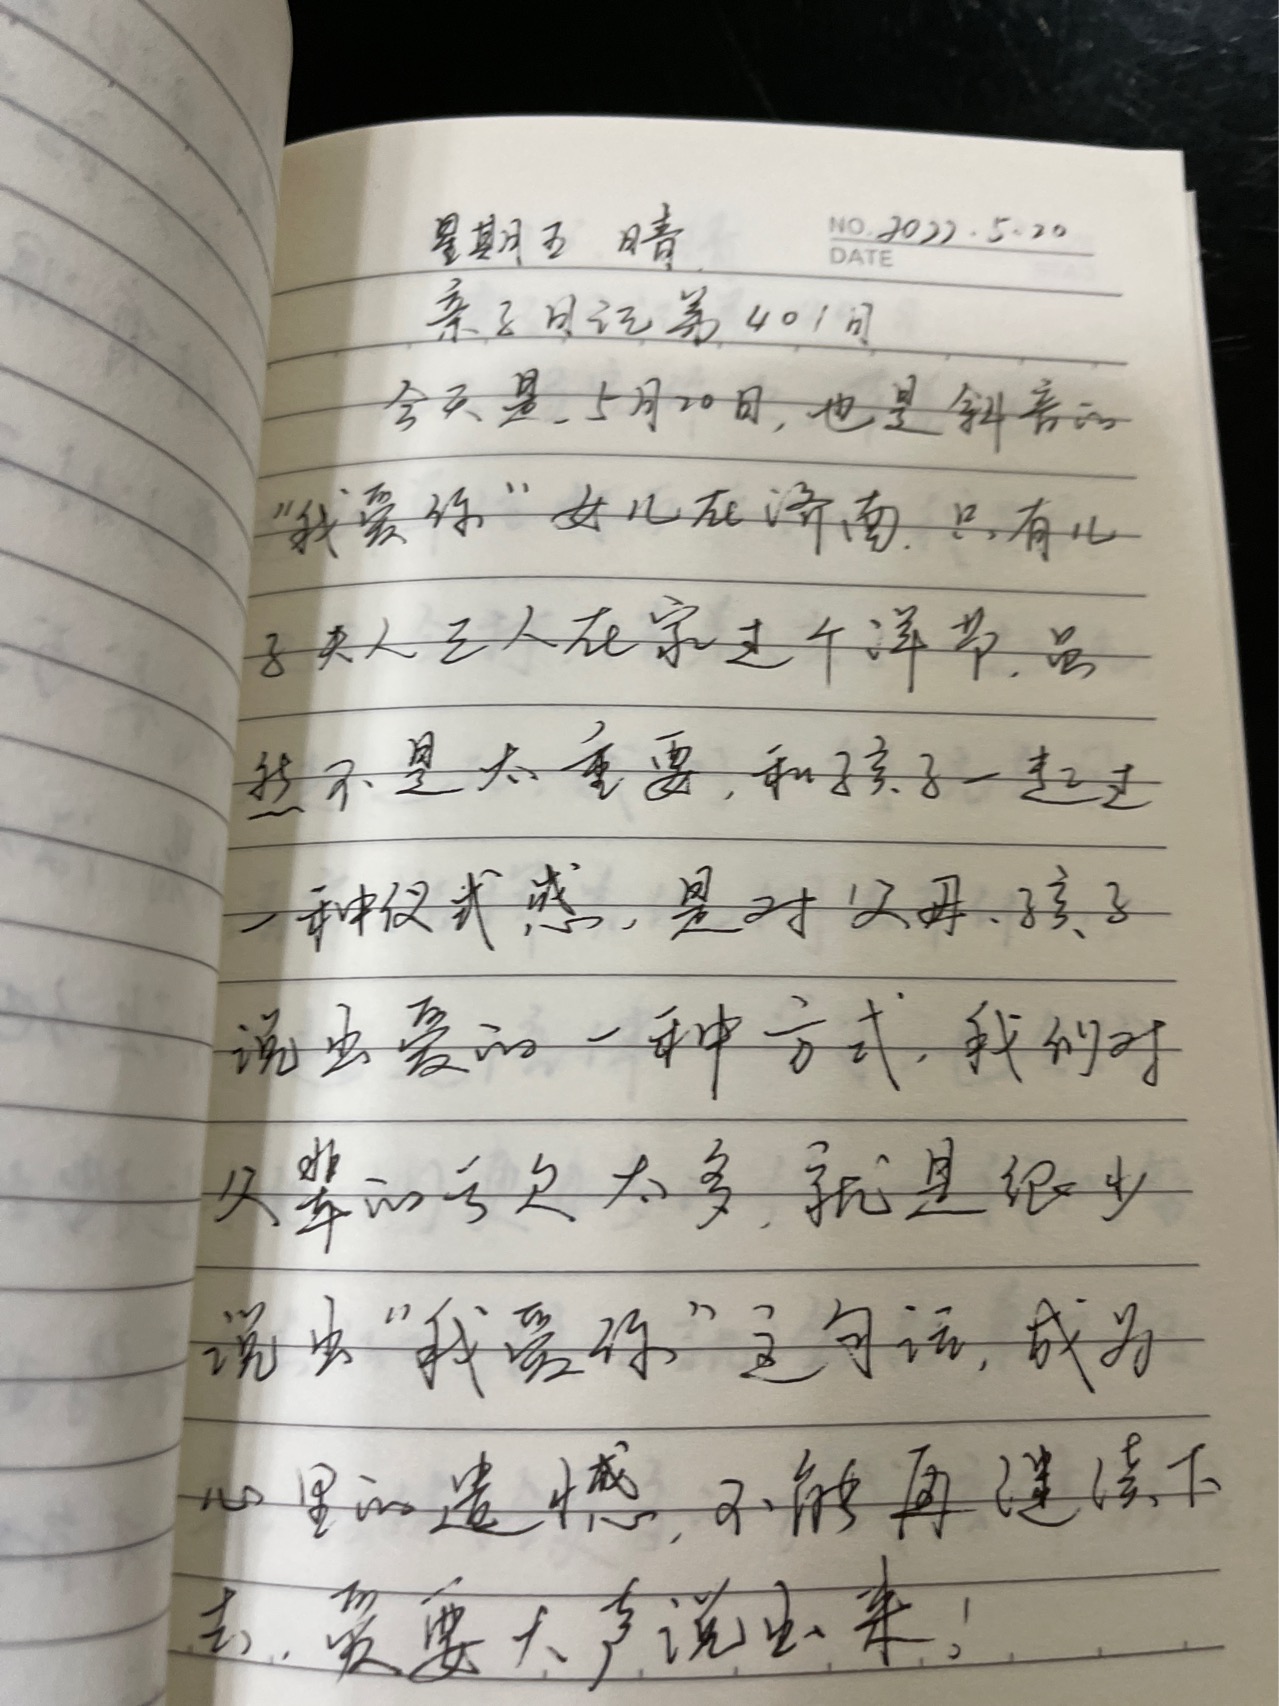 星期五 晴 NO. 2022.5.20
DATE
亲子日记第401日
今天是.5月20日,也是斜音的
"我爱你"女儿在济南.只有儿
子夫人三人在家过个洋节.虽
然不是太重要,和孩子一起过
一种仪式感,是对父母、孩子
说出爱的一种方式,我们对
父辈的亏欠太多,就是很少
说出"我爱你"这句话,成为
心里的遗憾,不能再继续下
去,爱要大声说出来!